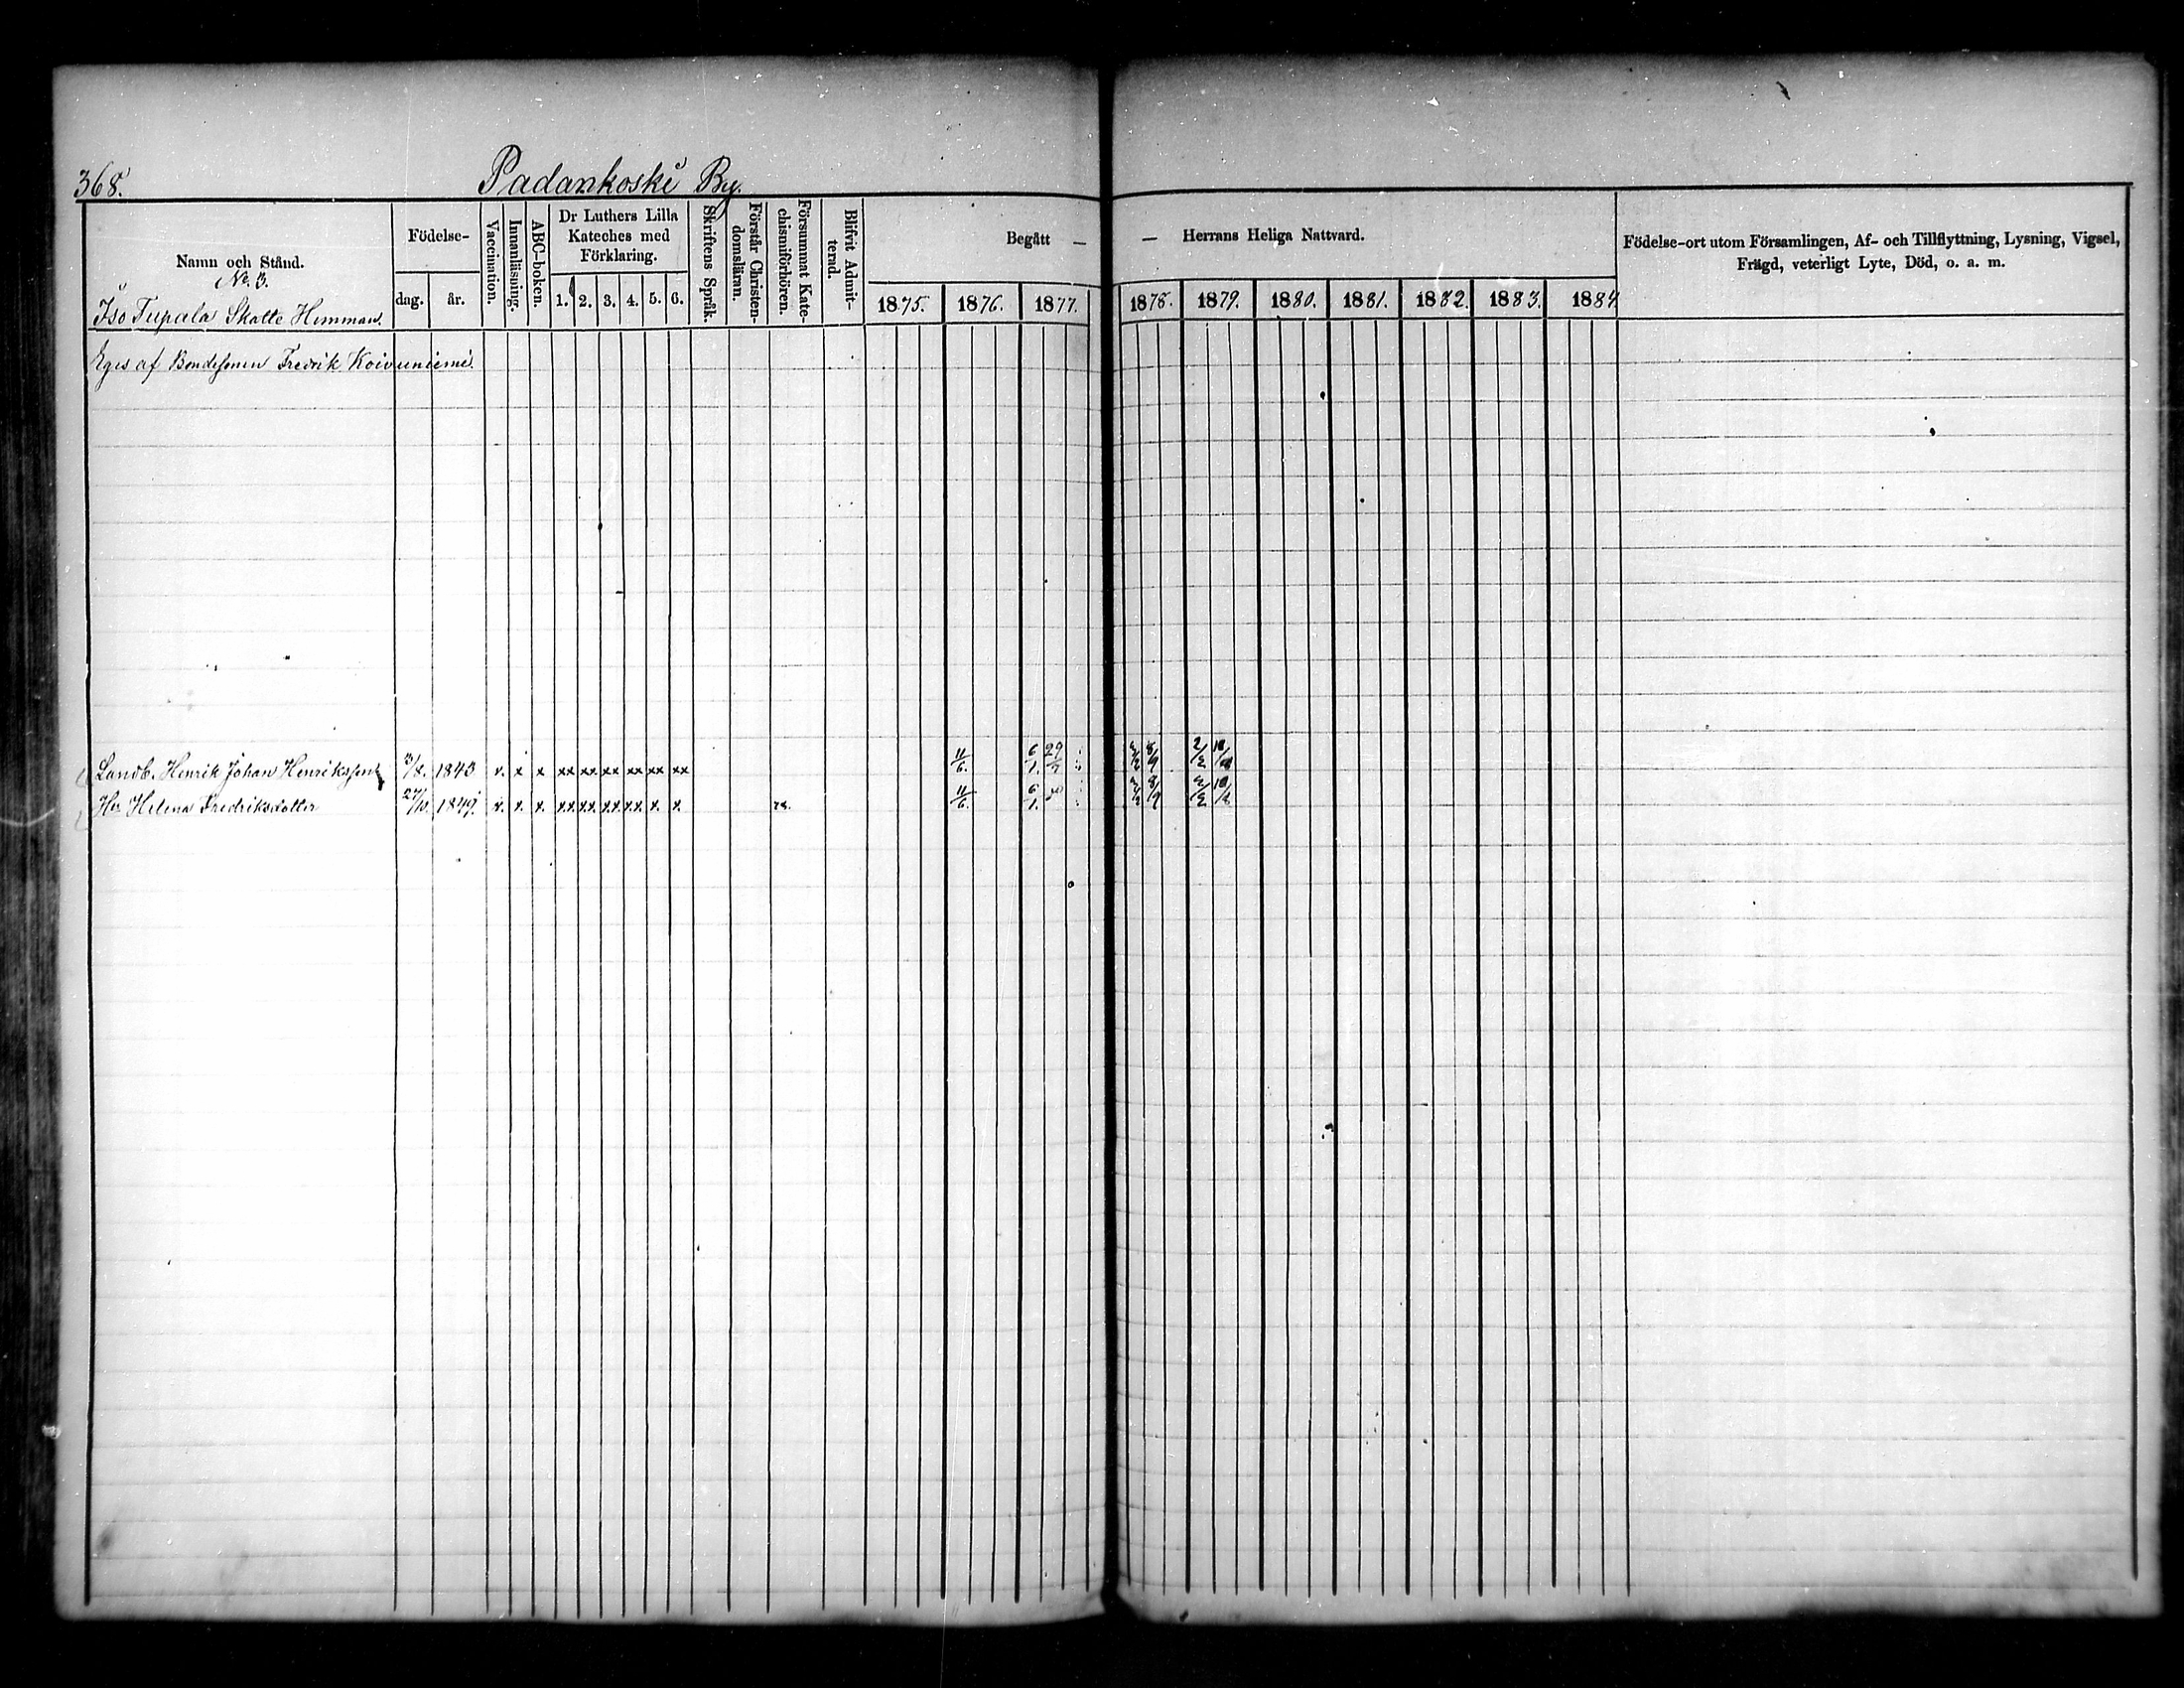 368.
Padankoski By.
Namn och Stånd.
No 3.
Iso Tupala Skatte Hemman.
Födelse-
dag. år.
Vaccination.
Innanläsning.
ABC-boken.
Dr Luthers Lilla
Kateches med
Förklaring.
1. 2. 3. 4. 5. 6.
Skriftens Språk.
Förstår Christen-
domsläran.
Försummat Kate-
chismiförhören.
Blifvit Admit-
terad.
Begått — — Herrans Heliga Nattvard.
1875. 1876. 1877. 1878. 1879. 1880. 1881. 1882. 1883. 1884
Födelse-ort utom Församlingen, Af- och Tillflyttning, Lysning, Vigsel,
Frägd, veterligt Lyte, Död, o. a. m.
Eges af Bondesonen Fredrik Koivuniemi.
Landb. Henrik Johan Henriksson 1843 v. x x xx xx xx xx xx xx 11/6. 6/1. 29/7 8/9
Hu Helena Fredriksdotter 27/10. 1849. v. x. x. xx. xx. xx. xx. x. x. 11/6. 6/1. 8/9